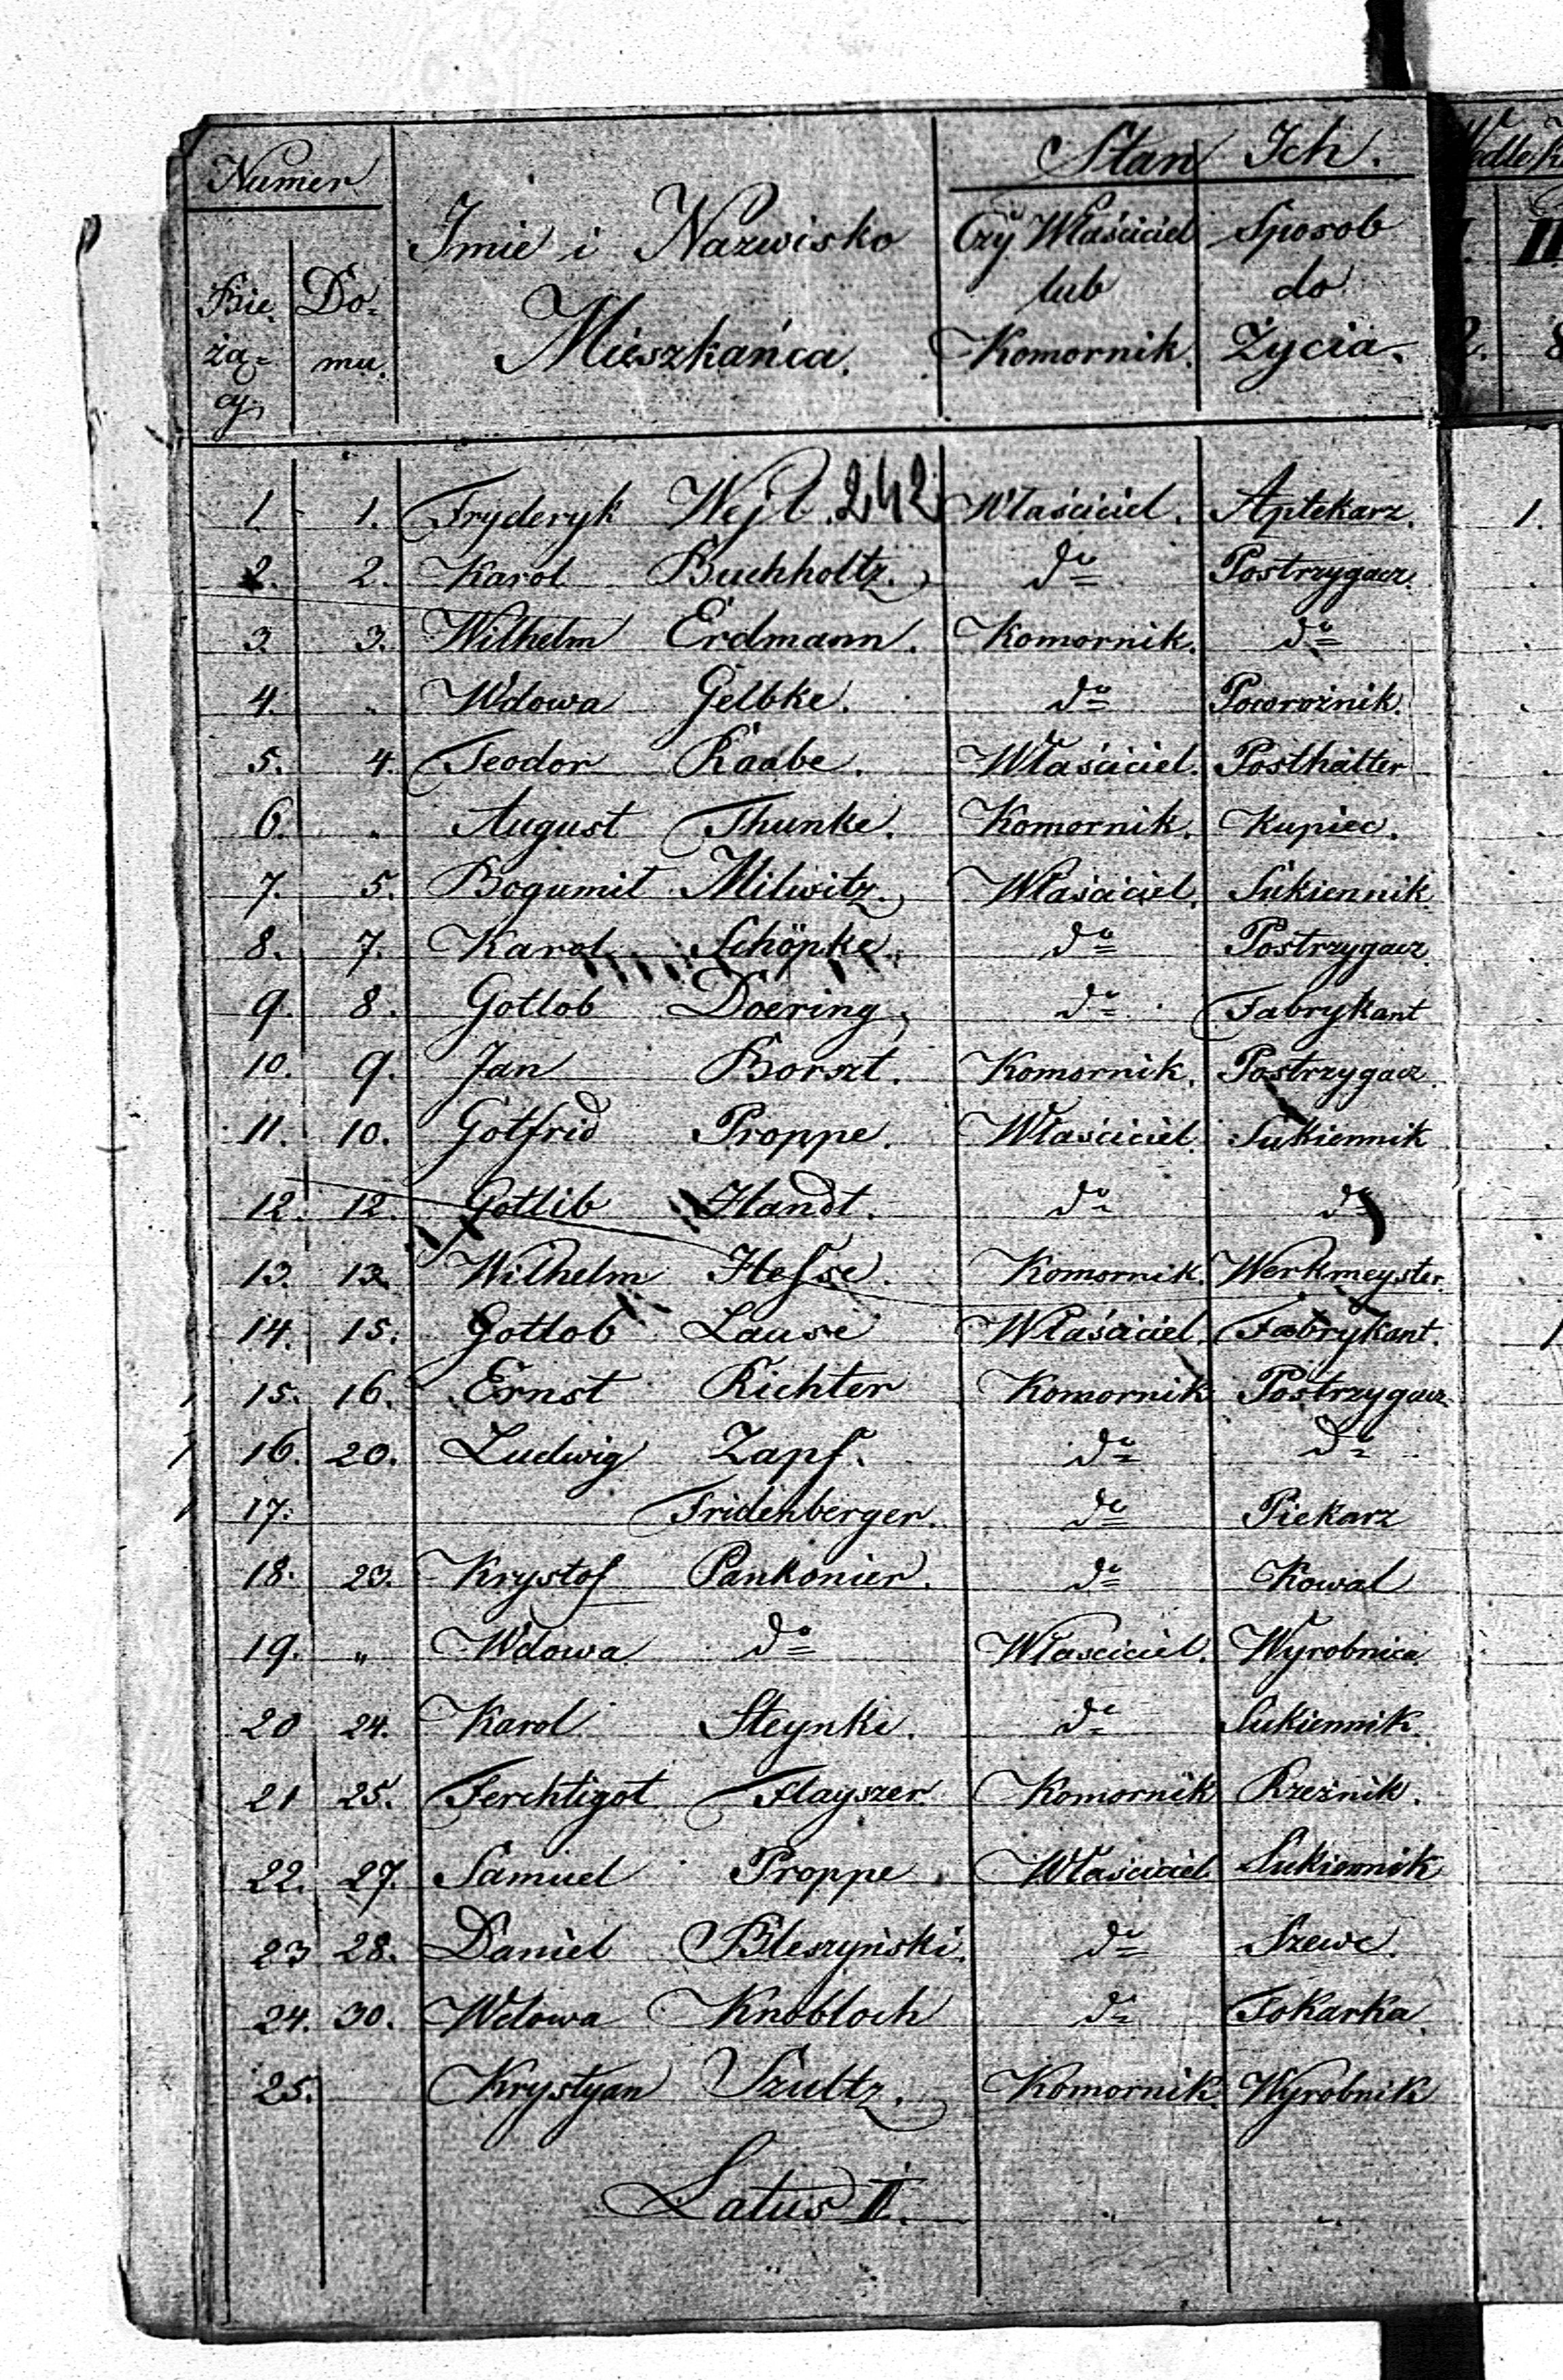 Numer
Stan Ich.
Imie i Nazwisko
Mieszkańca.
Bie.
żą=
cy.
Do=
mu.
Czy Właściciel
lub
Komornik.
Sposob
do
Życia.
Wedle
II
1. 1. Fryderyk Wejl. 242 Właściciel. Aptekarz. 1.
2. 2. Karol Buchholtz. do Postrzygacz.
3. 3. Wilhelm Erdmann. Komornik. do
4. " Wdowa Gelbke. do Powroźnik.
5. 4. Teodor Raabe. Właściciel. Posthalter
6. " August Thunke. Komornik. Kupiec.
7. 5. Bogumił Milwitz. Właściciel. Sukiennik.
8. 7. Karol Schöpke. do Postrzygacz.
9. 8. Gotlob Doering. do Fabrykant
10. 9. Jan Borszt. Komornik. Postrzygacz.
11. 10. Gotfrid Proppe. Właściciel. Sukiennik
12. 12. Gotlib Handt. do do
13. 13. Wilhelm Hesse. Komornik. Werkmeyster.
14. 15. Gotlob Lause Właściciel. Fabrykant.
15. 16. Ernst Richter Komornik Postrzygacz.
16. 20. Ludwig Zapf. do do
17. Fridenberger. do Piekarz
18. 23. Krystof Pankonier. do Kowal
19. " Wdowa do Właściciel. Wyrobnica
20 24. Karol Steynke. do Sukiennik.
21 25. Ferchtigot Flayszer. Komornik Rzeźnik.
22. 27. Samuel Proppe Właściciel Sukiennik
23 28. Daniel Bleszyński. do Szewc.
24. 30. Wdowa Knobloch do Tokarka.
25. Krystyan Szultz. Komornik. Wyrobnik
Latus II.